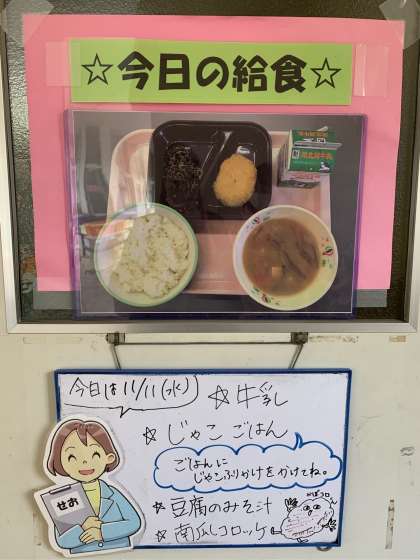 ☆今日の給食☆
今日は 11/11(水)
☆ 牛乳
☆ じゃこ ごはん
ごはんに
じゃこふりかけをかけてね。
☆ 豆腐のみそ汁
☆ 南瓜コロッケ
せお